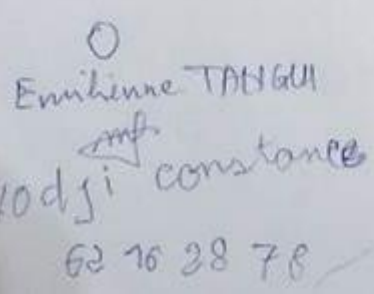 O
Emilienne TANGUI
constance
62 16 28 78